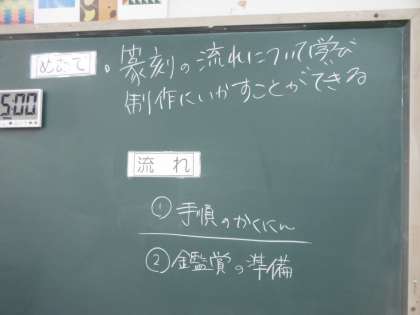 めあて
。篆刻の流れについて学び
制作にいかすことができる
5:00
流れ
① 手順のかくにん
② 鑑賞の準備